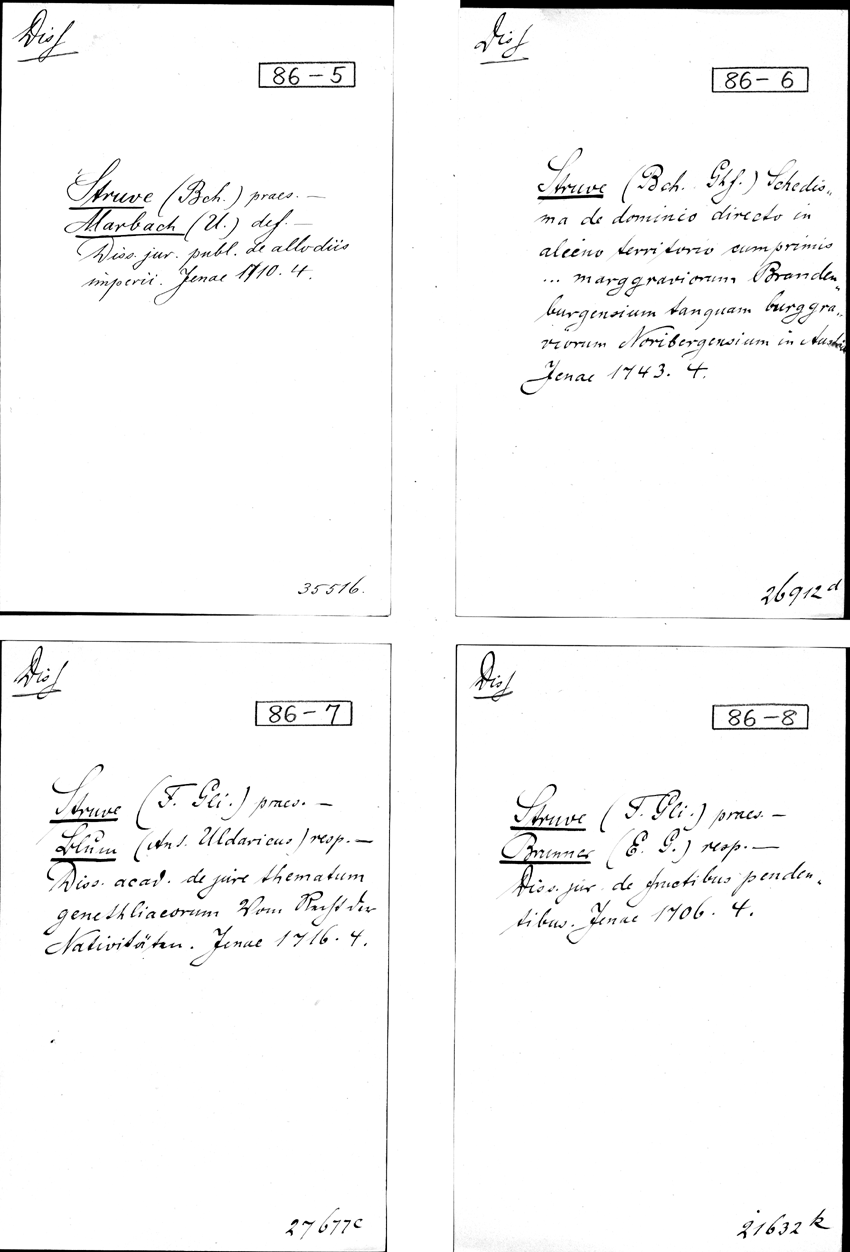 Diss
86-5
Struve (Bch.) praes. —
Marbach (U.) def. —
Diss. jur. publ. de allodiis
imperii. Jenae 1710. 4.
35516.
Diss
86-6
Struve (Bch. Ghf.) Schedis„
ma de dominio directo in
alieno territorio cumprimis
... marggraviorum Branden„
burgensium tanquam burggra„
viorum Noribergensium in Austria
Jenae 1743. 4.
26912 d
Diss
86-7
Struve (F. Gli.) praes. —
Blum (Ans. Uldaricus) resp. —
Diss. acad. de jure thematum
genethliacorum Vom Recht der
Nativitäten. Jenae 1716. 4.
27677c
Diss
86-8
Struve (F. Gli.) praes. —
Brunner (E. G.) resp. —
Diss. jur. de fructibus penden„
tibus. Jenae 1706. 4.
21632 k